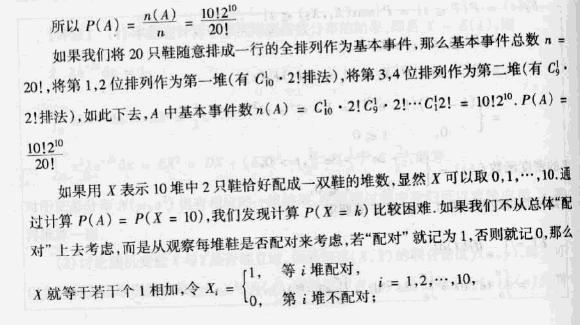 所以 P(A) = n(A)/n = 10!2¹⁰/20!
如果我们将 20 只鞋随意排成一行的全排列作为基本事件,那么基本事件总数 n =
20!,将第 1,2 位排列作为第一堆(有 C¹₁₀ · 2!排法),将第 3,4 位排列作为第二堆(有 C¹₉ ·
2!排法),如此下去,A 中基本事件数 n(A) = C¹₁₀ · 2!C¹₉ · 2!⋯C¹₁2! = 10!2¹⁰. P(A) =
10!2¹⁰/20!
如果用 X 表示 10 堆中 2 只鞋恰好配成一双鞋的堆数,显然 X 可以取 0,1,⋯,10.通
过计算 P(A) = P(X = 10),我们发现计算 P(X = k) 比较困难.如果我们不从总体“配
对”上去考虑,而是从观察每堆鞋是否配对来考虑,若“配对”就记为 1,否则就记 0,那么
X 就等于若干个 1 相加,令 Xᵢ = {1, 等 i 堆配对, 0, 第 i 堆不配对; i = 1,2,⋯,10,